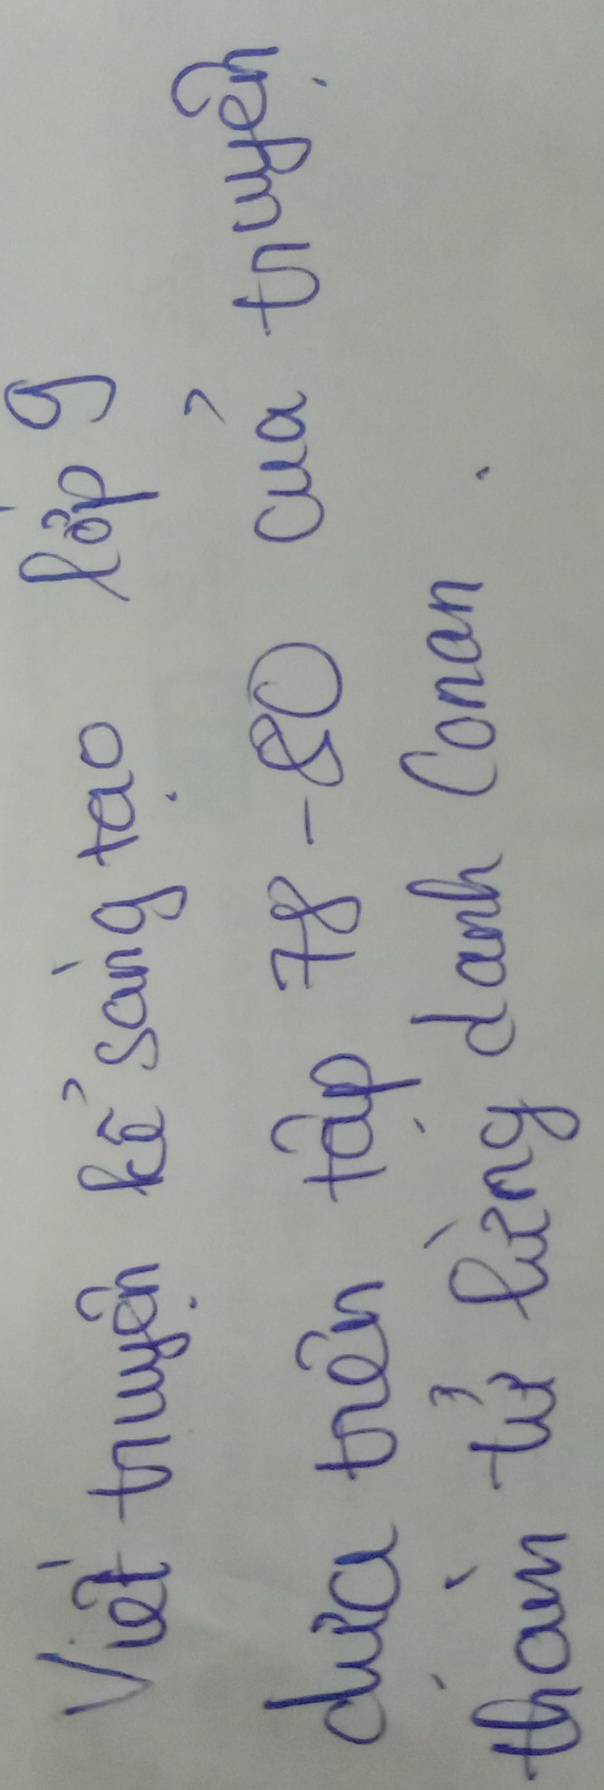 Viết truyện kể sáng tạo lớp 9
dựa trên tập 78-80 của truyện
thám tử lừng danh Conan.